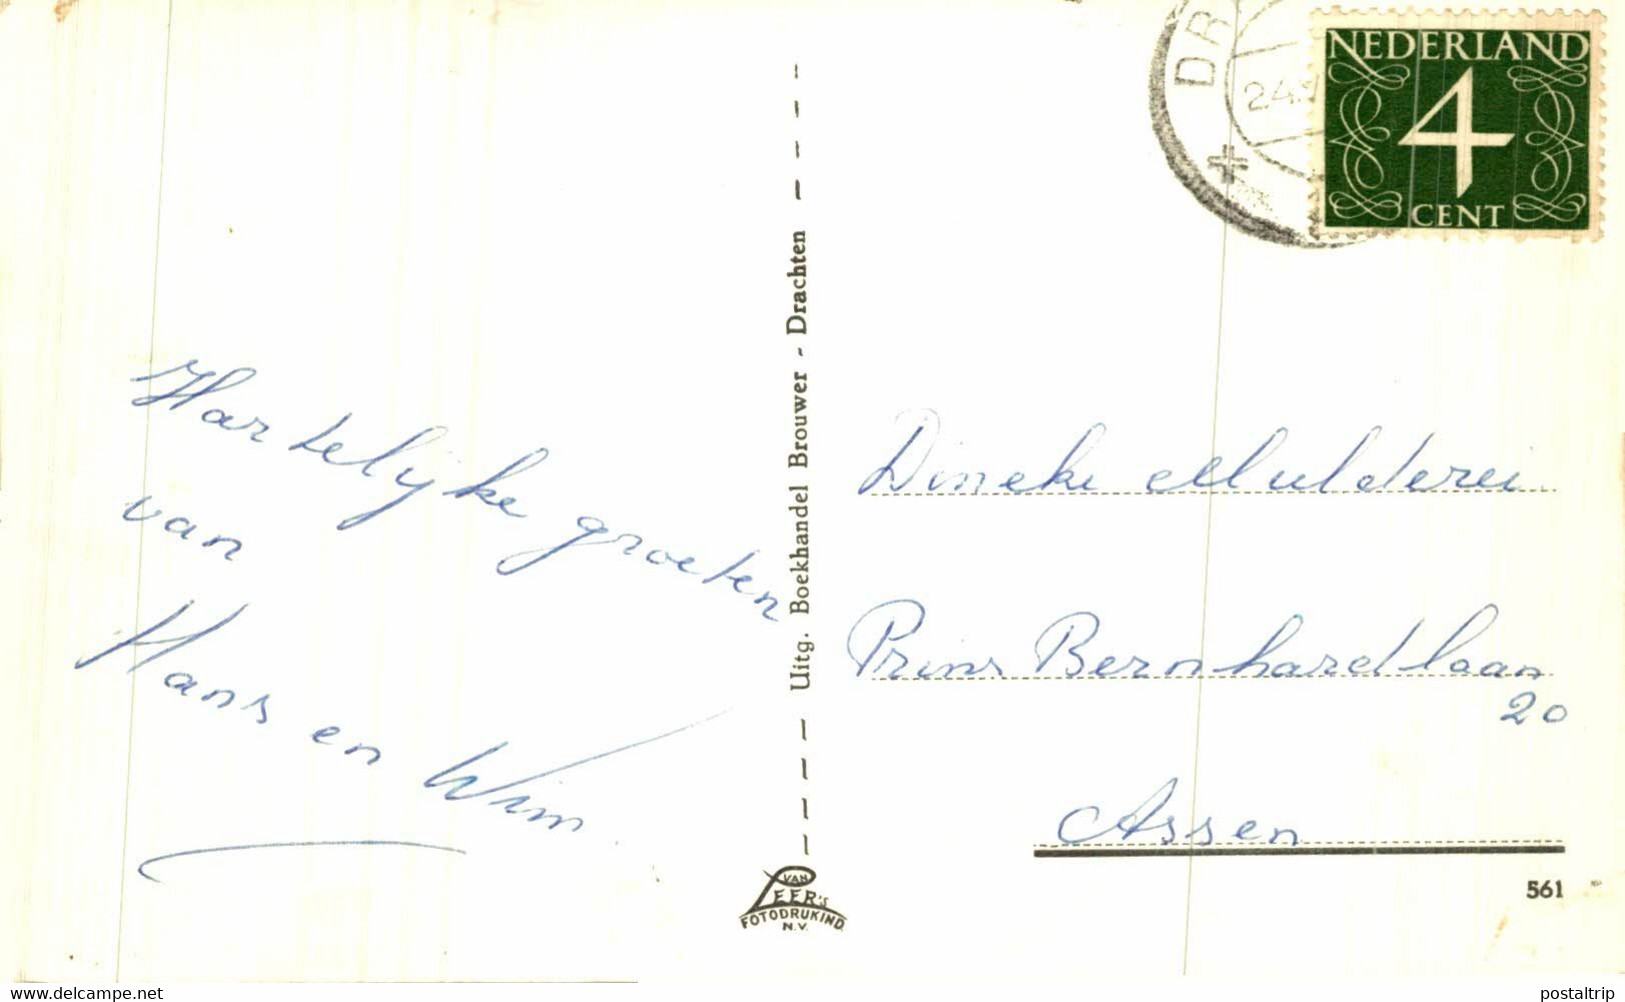 Hartelijke groeten
van
Hans en Wim
Uitg. Boekhandel Brouwer - Drachten
VAN
LEER's
FOTODRUKIND.
N.V.
DR
24.
NEDERLAND
4
CENT
Dineke Mulderei.
Prins Bernhardlaan
20
Assen
561
www.delcampe.net
postaltrip